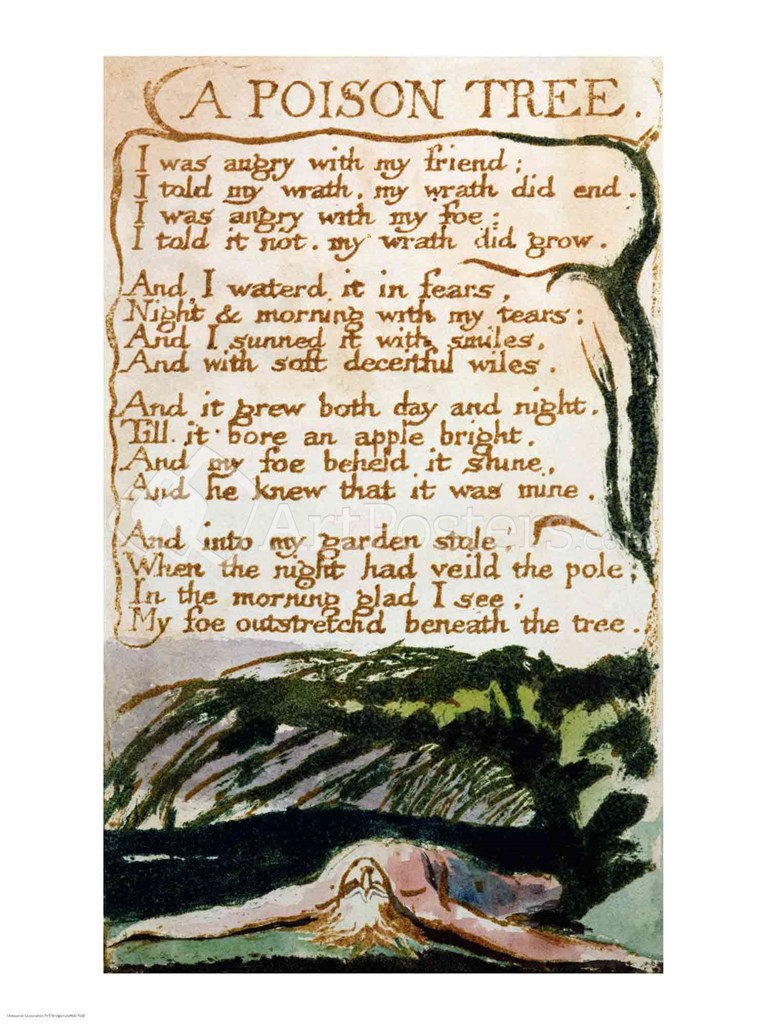 A POISON TREE.
I was angry with my friend;
I told my wrath, my wrath did end.
I was angry with my foe:
I told it not. my wrath did grow.
And I waterd it in fears,
Night & morning with my tears:
And I sunned it with smiles,
And with soft deceitful wiles.
And it grew both day and night.
Till it bore an apple bright.
And my foe beheld it shine,
And he knew that it was mine.
And into my garden stole.
When the night had veild the pole;
In the morning glad I see;
My foe outstretchd beneath the tree.
ArtPosters.com